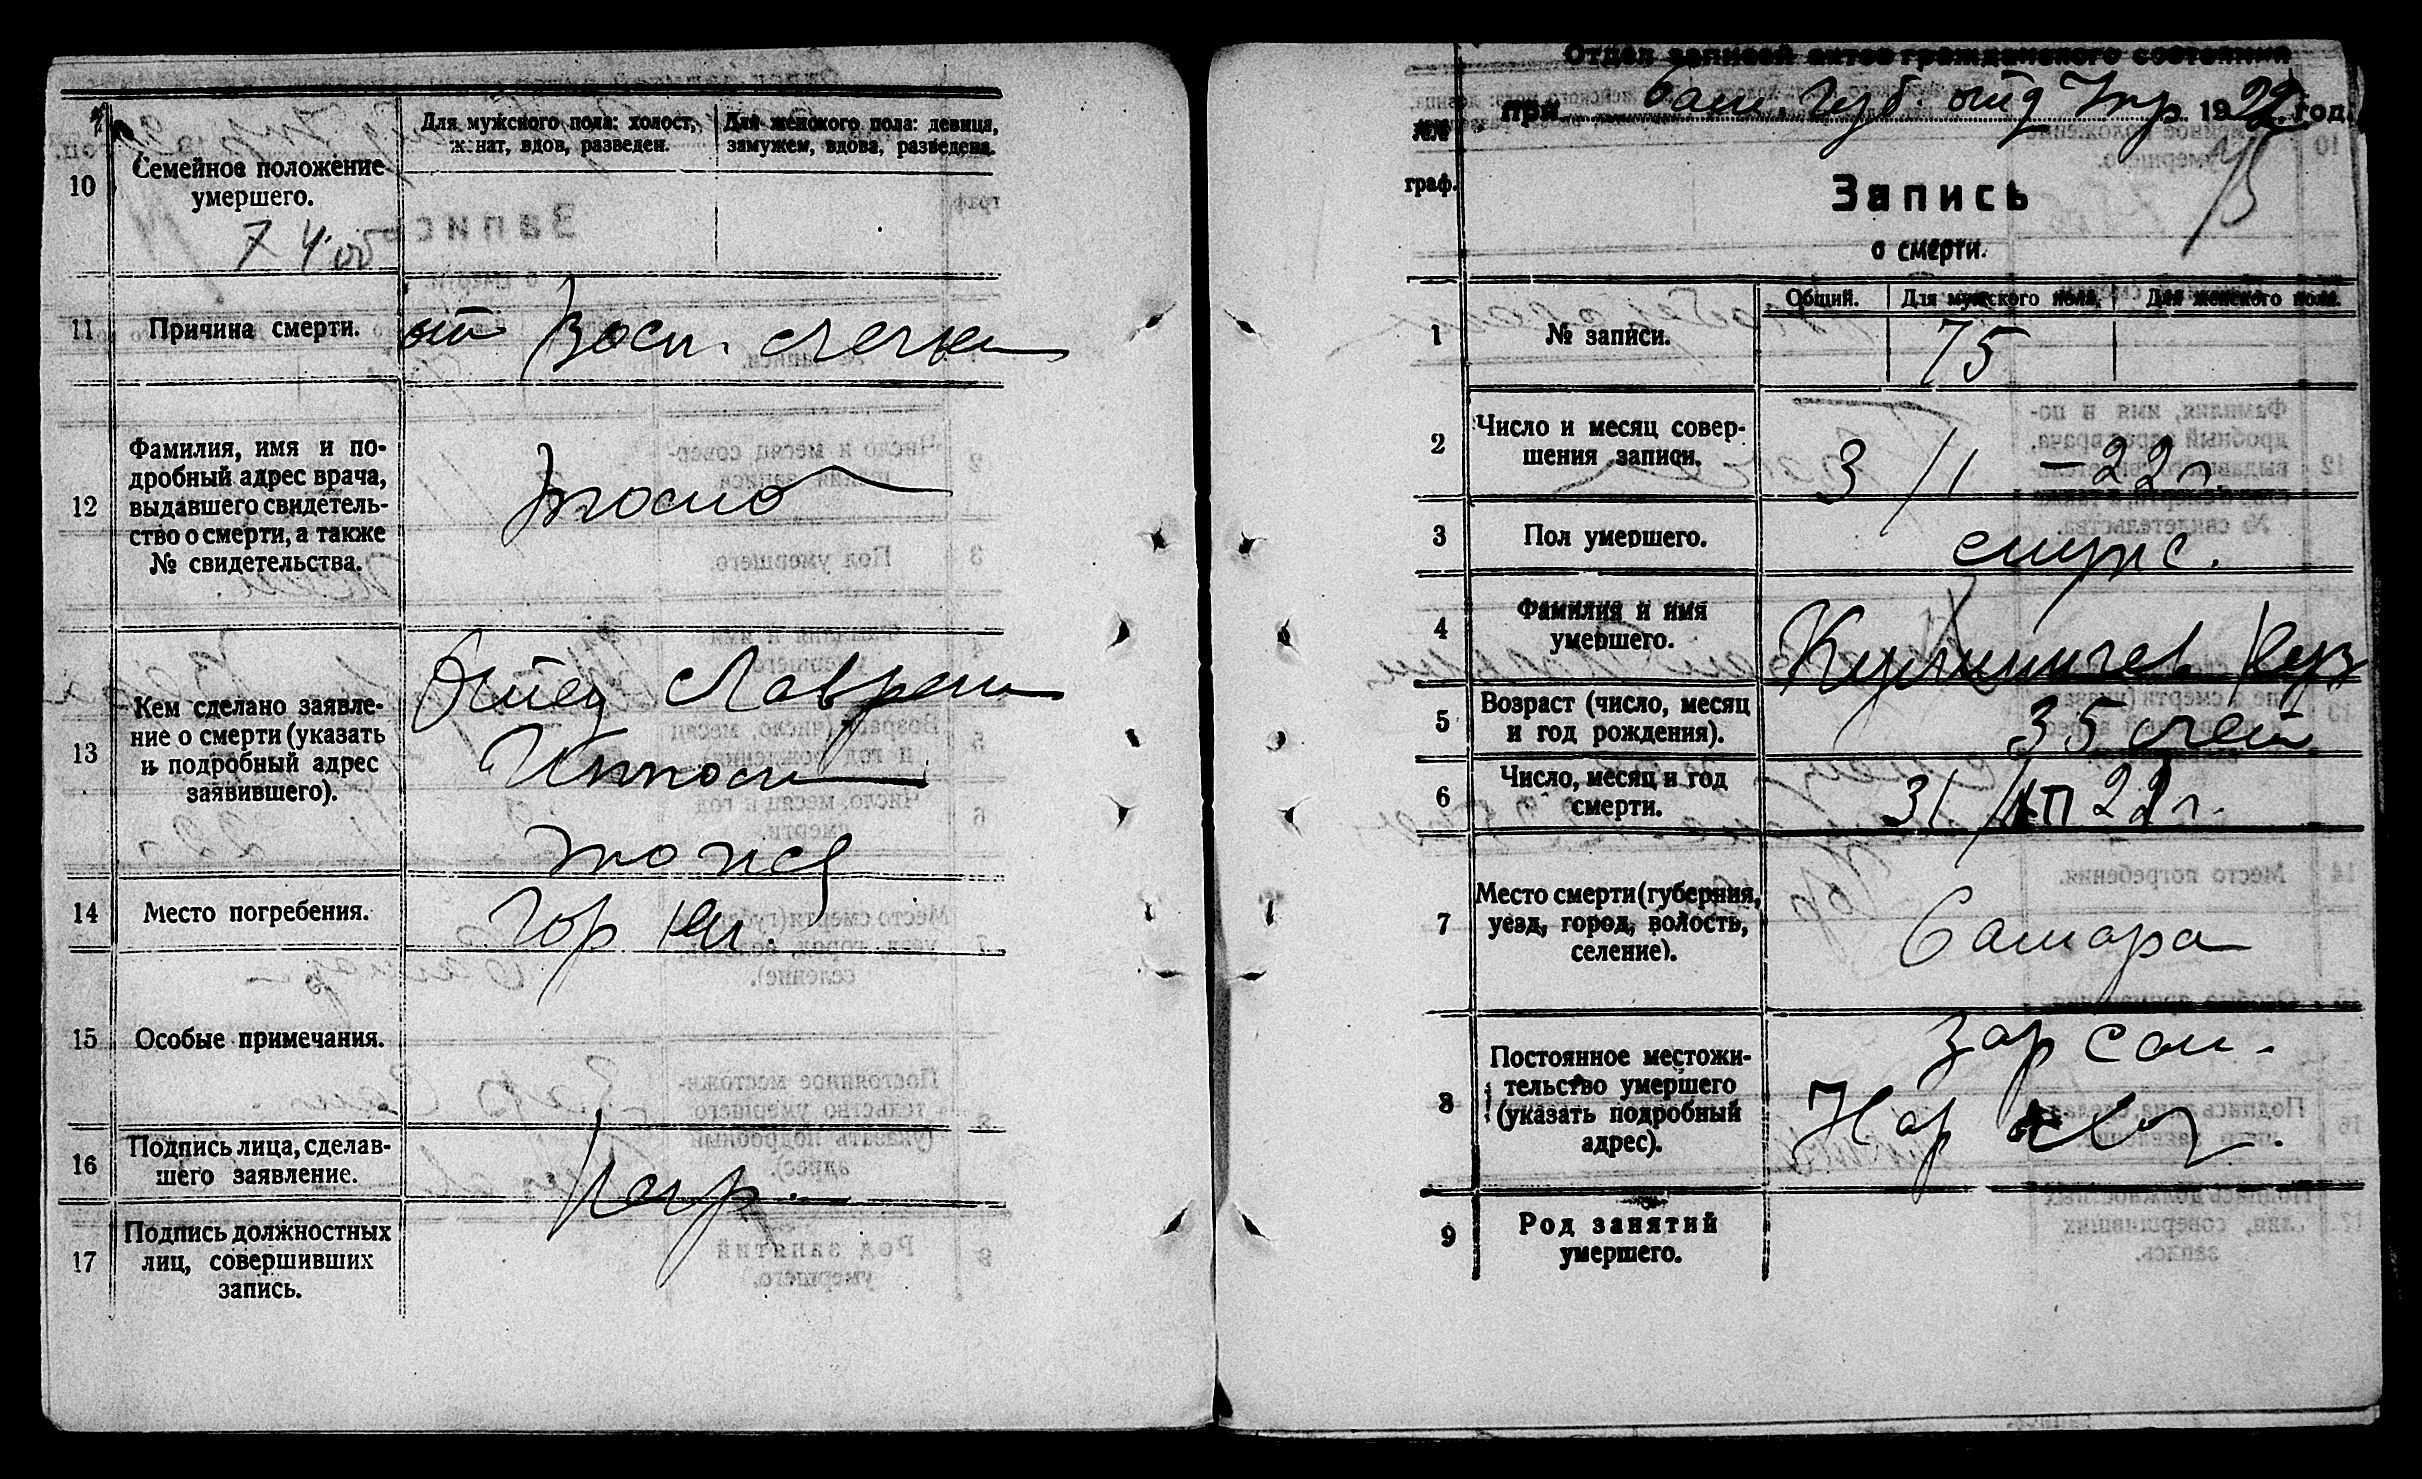 10
Семейное положение
умершего.
Для мужского пола: холост,
женат, вдов, разведен.
Для женского пола: девица,
замужем, вдова, разведена.
11
Причина смерти.
от Восп. легких
12
Фамилия, имя и по-
дробный адрес врача,
выдавшего свидетель-
ство о смерти, а также
№ свидетельства.
13
Кем сделано заявле-
ние о смерти (указать
и подробный адрес
заявившего).
Отец
14
Место погребения.
Гор кл.
15
Особые примечания.
16
Подпись лица, сделав-
шего заявление.
17
Подпись должностных
лиц, совершивших
запись.
Отдел записей актов гражданского состояния
при Сам. Губ. отд Упр 1922 год.
№№
граф.
Запись
о смерти.
1
№ записи.
Общий.
Для мужского пола.
Для женского пола.
75
2
Число и месяц совер-
шения записи.
3/I – 22 г.
3
Пол умершего.
мужс.
4
Фамилия и имя
умершего.
5
Возраст (число, месяц
и год рождения).
35 лет
6
Число, месяц и год
смерти.
7
Место смерти (губерния,
уезд, город, волость,
селение).
Самара
8
Постоянное местожи-
тельство умершего
(указать подробный
адрес).
Зар сам.
9
Род занятий
умершего.